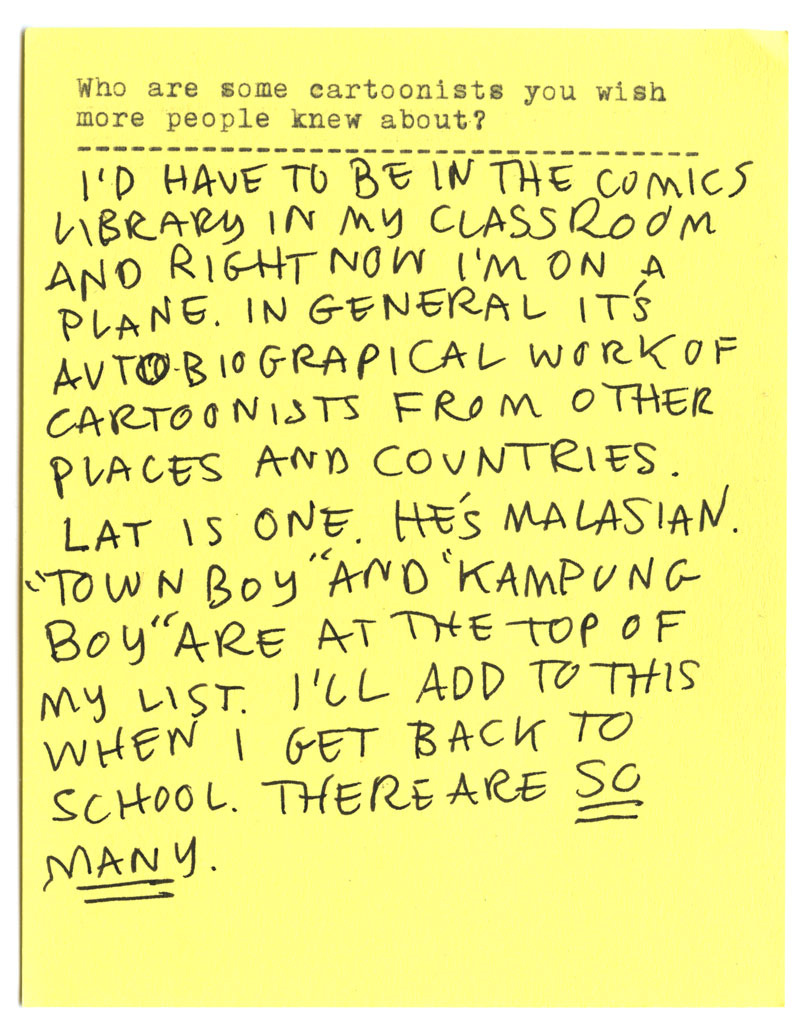 Who are some cartoonists you wish
more people knew about?
I'D HAVE TO BE IN THE COMICS
LIBRARY IN MY CLASSROOM
AND RIGHT NOW I'M ON A
PLANE. IN GENERAL IT'S
AUTOBIOGRAPICAL WORK OF
CARTOONISTS FROM OTHER
PLACES AND COUNTRIES.
LAT IS ONE. HE'S MALASIAN.
"TOWN BOY" AND "KAMPUNG
BOY" ARE AT THE TOP OF
MY LIST. I'LL ADD TO THIS
WHEN I GET BACK TO
SCHOOL. THERE ARE SO
MANY.